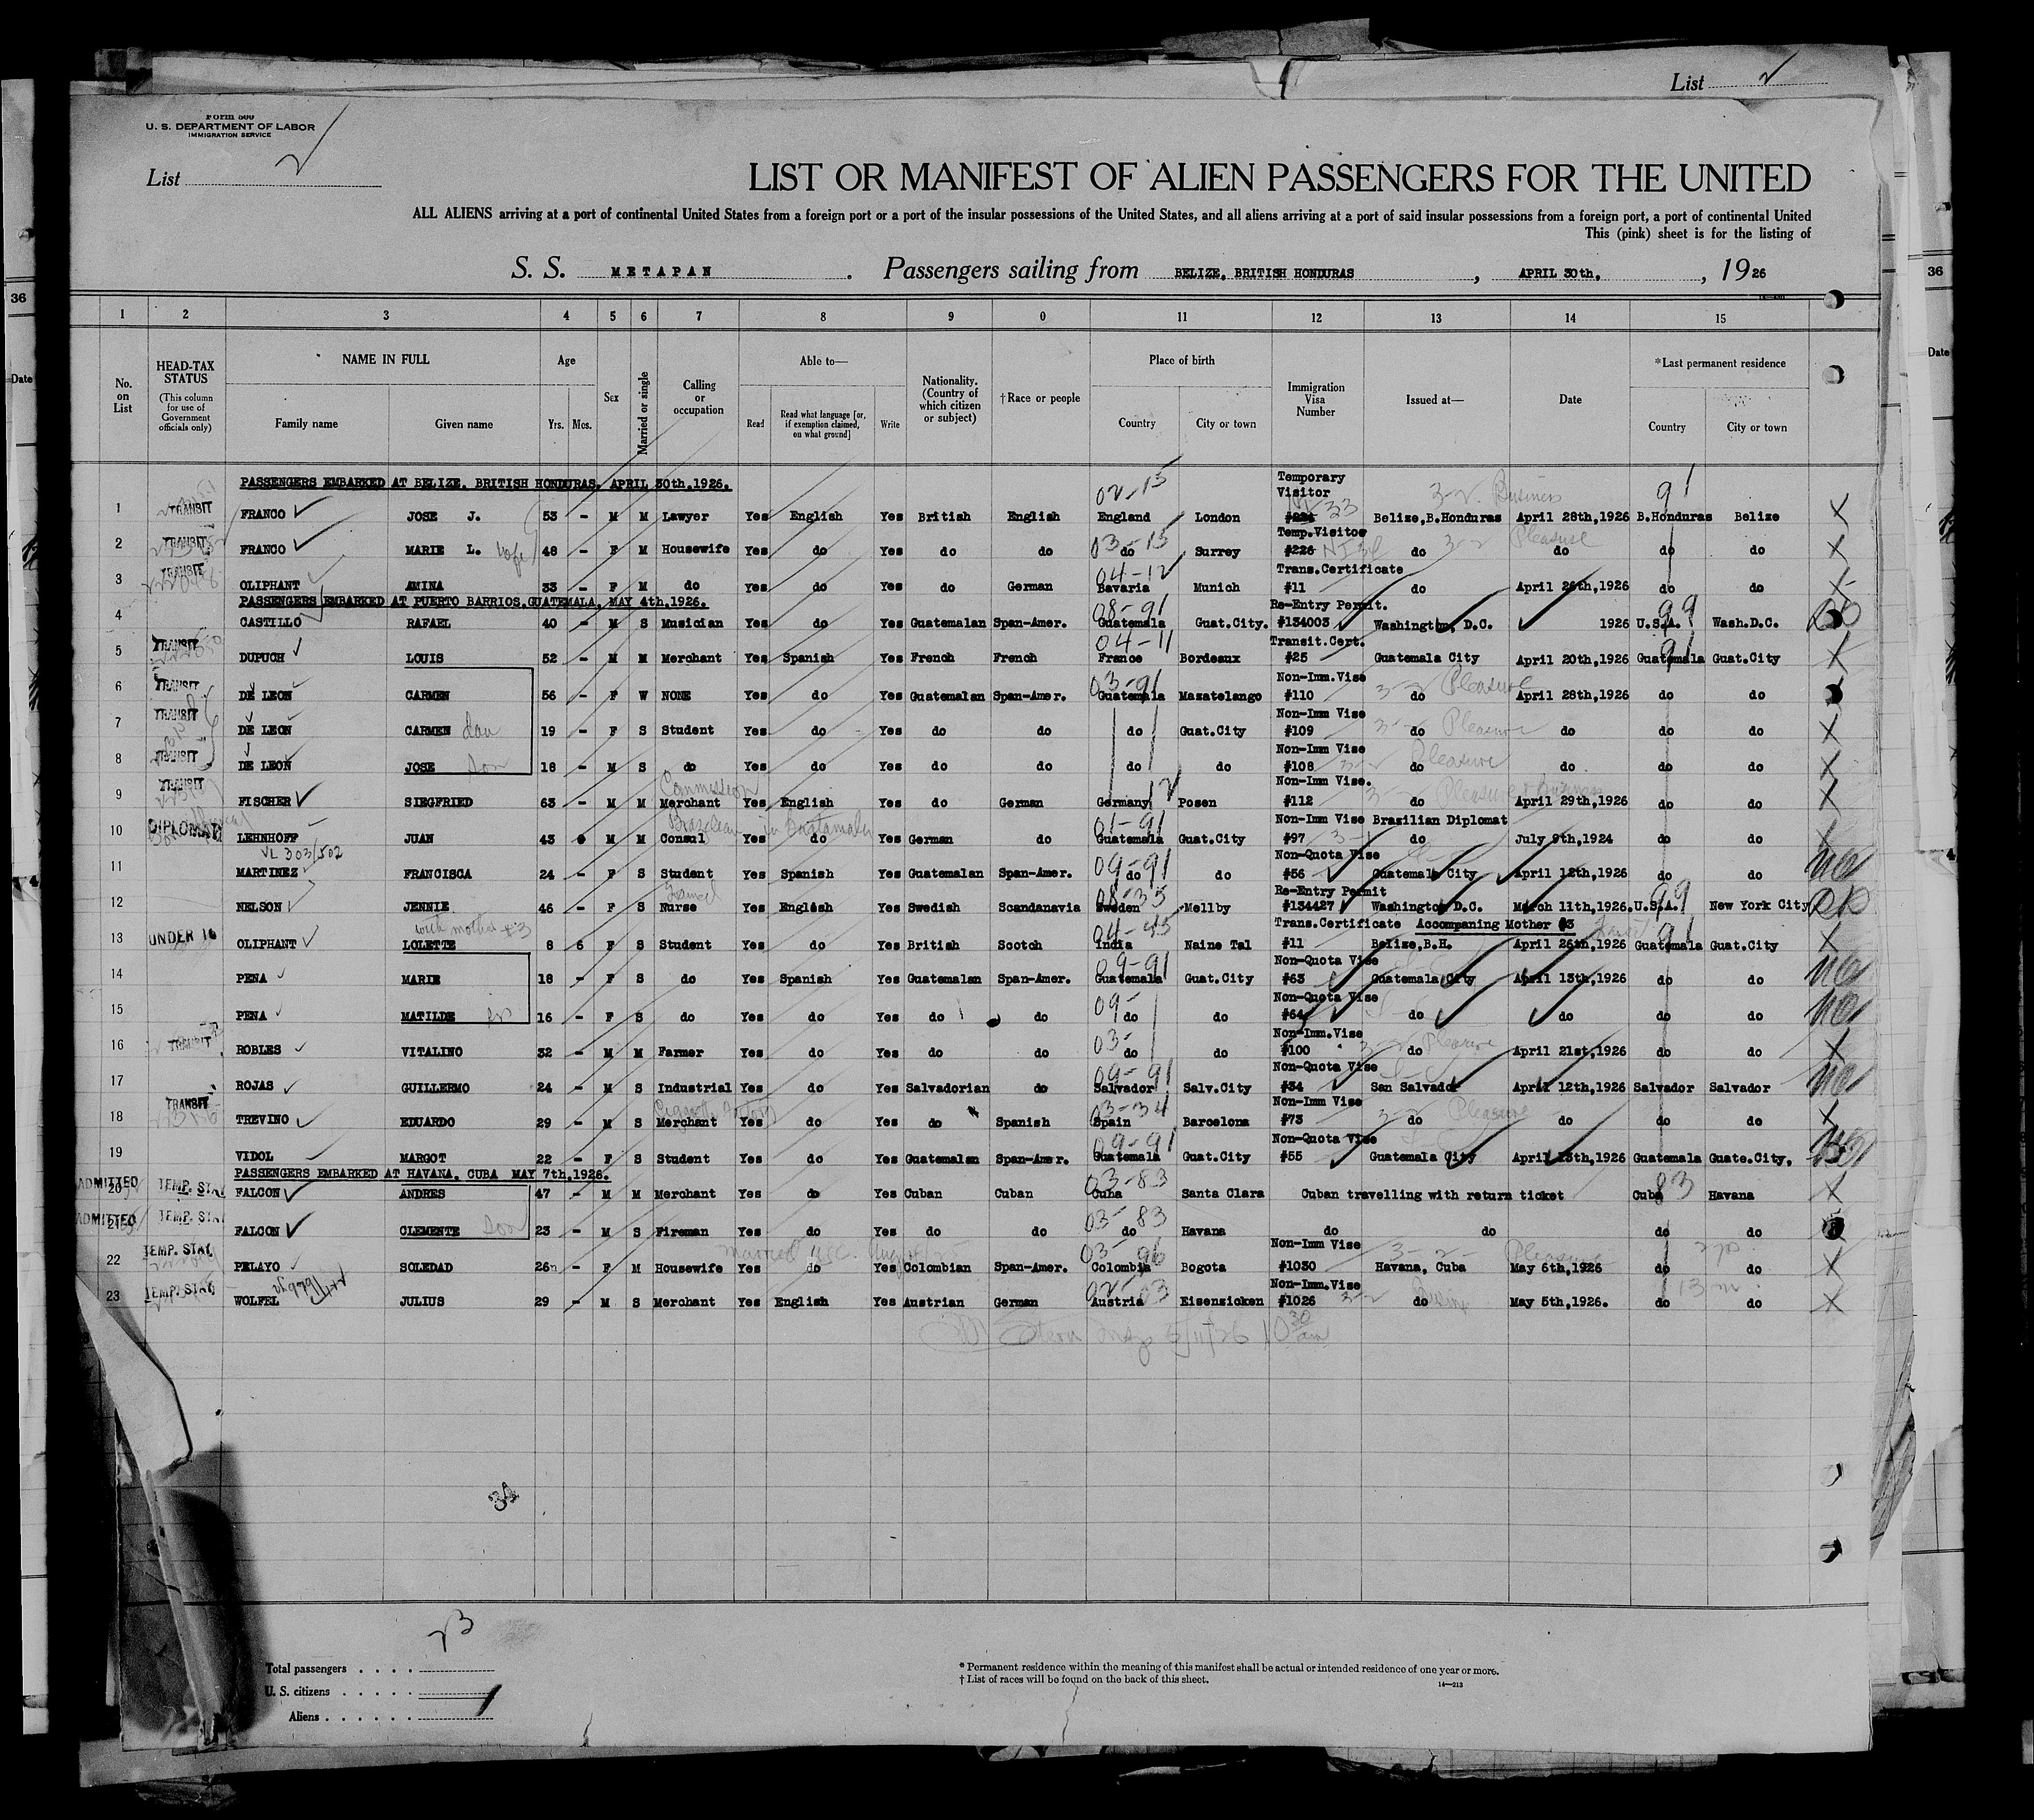 List
Form 500
U. S. DEPARTMENT OF LABOR
IMMIGRATION SERVICE
List
LIST OR MANIFEST OF ALIEN PASSENGERS FOR THE UNITED
ALL ALIENS arriving at a port of continental United States from a foreign port or a port of the insular possessions of the United States, and all aliens arriving at a port of said insular possessions from a foreign port, a port of continental United
This (pink) sheet is for the listing of
S. S. METAPAN. Passengers sailing from BELIZE, BRITISH HONDURAS, APRIL 30th, , 1926
36 36
1 2 3 4 5 6 7 8 9 0 11 12 13 14 15
Date No. on List HEAD-TAX STATUS (This column for use of Government officials only) NAME IN FULL Family name Given name Age Yrs. Mos. Sex Married or single Calling or occupation Able to— Read Read what language [or, if exemption claimed, on what ground] Write Nationality. (Country of which citizen or subject) †Race or people Place of birth Country City or town Immigration Visa Number Issued at— Date *Last permanent residence Country City or town Date
PASSENGERS EMBARKED AT BELIZE, BRITISH HONDURAS, APRIL 30th,1926.
02-15 Temporary Visitor 3-2 Business 91
1 TRANSIT FRANCO JOSE J. 53 - M M Lawyer Yes English Yes British English England London Belize,B.Honduras April 28th,1926 B.Honduras Belize X
03-15 Temp.Visitor 3-2 Pleasure
2 TRANSIT FRANCO MARIE L. wife 48 - F M Housewife Yes do Yes do do do Surrey #226 do do do do X
04-12 Trans.Certificate
3 TRANSIT OLIPHANT AMINA 33 - F M do Yes do Yes do German Bavaria Munich #11 do April 26th,1926 do do X
PASSENGERS EMBARKED AT PUERTO BARRIOS,GUATEMALA, MAY 4th,1926.
08-91 Re-Entry Permit. 99
4 CASTILLO RAFAEL 40 - M S Musician Yes do Yes Guatemalan Span-Amer. Guatemala Guat.City. #134003 Washington, D.C. 1926 U.S.A. Wash.D.C.
04-11 Transit.Cert. 91
5 TRANSIT DUPUCH LOUIS 52 - M M Merchant Yes Spanish Yes French French France Bordeaux #25 Guatemala City April 20th,1926 Guatemala Guat.City X
03-91 Non-Imm.Vise 3-2 Pleasure
6 TRANSIT DE LEON CARMEN 56 - F W NONE Yes do Yes Guatemalan Span-Amer. Guatemala Mazatelango #110 do April 28th,1926 do do
Non-Imm Vise 3-2 Pleasure
7 TRANSIT DE LEON CARMEN dau 19 - F S Student Yes do Yes do do do Guat.City #109 do do do do X
Non-Imm Vise Pleasure
8 TRANSIT DE LEON JOSE son 18 - M S do Yes do Yes do do do do #108 do do do do X
Commission 12 Non-Imm Vise. 3-2 Pleasure & Business
9 TRANSIT FISCHER SIEGFRIED 63 - M M Merchant Yes English Yes do German Germany Posen #112 do April 29th,1926 do do X
Brazilian in Guatemala 01-91 Non-Imm Vise Brazilian Diplomat
10 DIPLOMAT LEHNHOFF JUAN 43 M M Consul Yes do Yes German do Guatemala Guat.City #97 3-1 do July 9th,1924 do do X
VL 303/502 09-91 Non-Quota Vise
11 MARTINEZ FRANCISCA 24 - F S Student Yes Spanish Yes Guatemalan Span-Amer. do do #56 Guatemala City April 12th,1926 do do
08-35 Re-Entry Permit 99
12 NELSON JENNIE 46 - F S Nurse Yes English Yes Swedish Scandanavia Sweden Mellby #134427 Washington D.C. March 11th,1926. U.S.A. New York City
with mother #3 04-45 Trans.Certificate Accompaning Mother #3 91
13 UNDER 16 OLIPHANT LOLETTE 8 6 F S Student Yes do Yes British Scotch India Naine Tal #11 Belize,B.H. April 26th,1926 Guatemala Guat.City X
09-91 Non-Quota Vise
14 PENA MARIE 18 - F S do Yes Spanish Yes Guatemalan Span-Amer. Guatemala Guat.City #63 Guatemala City April 13th,1926 do do
09- Non-Quota Vise
15 PENA MATILDE 16 - F S do Yes do Yes do do do do #64 do do do do
03- Non-Imm.Vise 3-2 Pleasure
16 TRANSIT ROBLES VITALINO 32 - M M Farmer Yes do Yes do do do do #100 do April 21st,1926 do do X
09-91 Non-Quota Vise
17 ROJAS GUILLERMO 24 - M S Industrial Yes do Yes Salvadorian do Salvador Salv.City #34 San Salvador April 12th,1926 Salvador Salvador
03-34 Non-Imm Vise 3-2 Pleasure
18 TRANSIT TREVINO EDUARDO 29 - M S Merchant Yes do Yes do Spanish Spain Barcelona #73 do do do do X
09-91 Non-Quota Vise
19 VIDOL MARGOT 22 - F S Student Yes do Yes Guatemalan Span-Amer. Guatemala Guat.City #55 Guatemala City April 13th,1926 Guatemala Guate.City,
PASSENGERS EMBARKED AT HAVANA, CUBA MAY 7th,1926.
03-83 83
ADMITTED 20 TEMP. STAY FALCON ANDRES 47 - M M Merchant Yes do Yes Cuban Cuban Cuba Santa Clara Cuban travelling with return ticket Cuba Havana X
03-83
ADMITTED 21 TEMP. STAY FALCON CLEMENTE son 23 - M S Fireman Yes do Yes do do do Havana do do do do
03-96 Non-Imm Vise 3-2- Pleasure
22 TEMP. STAY PELAYO SOLEDAD 26 F M Housewife Yes do Yes Colombian Span-Amer. Colombia Bogota #1030 Havana, Cuba May 6th,1926 do do X
02-03 Non-Imm.Vise 3-2
23 TEMP. STAY WOLFEL JULIUS 29 - M S Merchant Yes English Yes Austrian German Austria Eisenzicken #1026 do May 5th,1926. do do X
5/11/26 10 30 am
34
23
Total passengers . . . .
U. S. citizens . . . . .
Aliens . . . . . .
* Permanent residence within the meaning of this manifest shall be actual or intended residence of one year or more.
† List of races will be found on the back of this sheet.
14—213